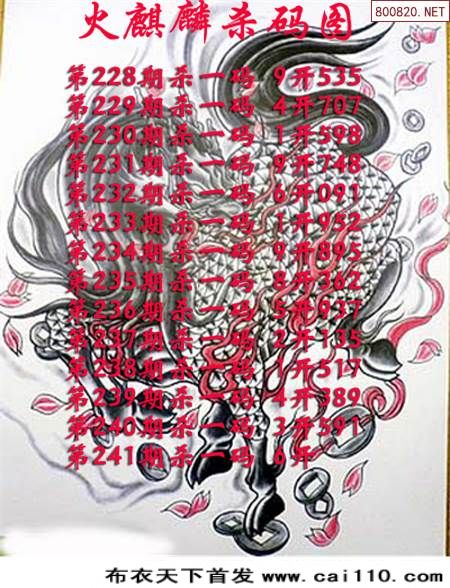 火麒麟杀码图
800820.NET
第228期杀一码 9开535
第229期杀一码 4开707
第230期杀一码 1开598
第231期杀一码 9开748
第232期杀一码 6开091
第233期杀一码 1开952
第234期杀一码 9开895
第235期杀一码 8开362
第236期杀一码 5开937
第237期杀一码 2开135
第238期杀一码 1开517
第239期杀一码 4开389
第240期杀一码 3开591
第241期杀一码 6开
布衣天下首发 www.cai110.com